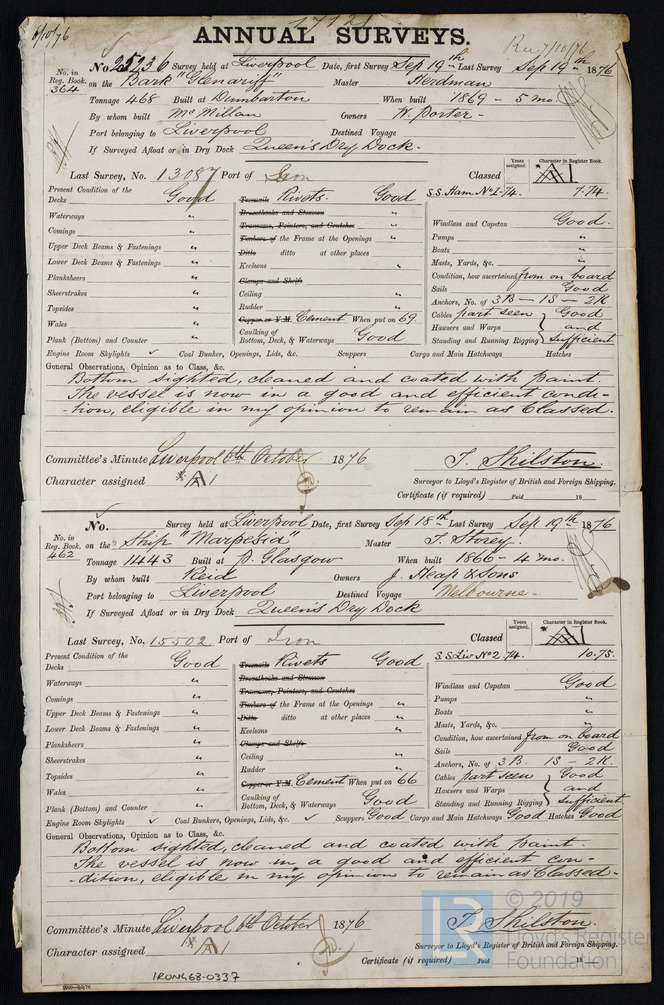 6/10/76
ANNUAL SURVEYS.
No. in Reg. Book. 364
No. 25236 Survey held at Liverpool Date, first Survey Sep 19th Last Survey Sep 19th 1876
on the Bark "Glenariff" Master Herdman
Tonnage 468 Built at Dumbarton When built 1869 - 5 mo.
By whom built McMillan Owners W. Porter -
Port belonging to Liverpool Destined Voyage
If Surveyed Afloat or in Dry Dock Queen's Dry Dock -
Last Survey, No. 13087 Port of Iron Classed
Years assigned. Character in Register Book.
S.S. Ham No 1-74. 7.74.
Present Condition of the
Decks Good
Waterways "
Comings "
Upper Deck Beams & Fastenings "
Lower Deck Beams & Fastenings "
Planksheers "
Sheerstrakes "
Topsides "
Wales "
Plank (Bottom) and Counter "
Treenails Rivets. Good
Breasthooks and Stemson "
Transoms, Pointers, and Crutches "
Timbers of the Frame at the Openings "
Ditto ditto at other places "
Keelsons "
Clamps and Shelfs
Ceiling "
Rudder "
Copper or Y.M. Cement When put on 69.
Caulking of Bottom, Deck, & Waterways Good
Windlass and Capstan Good.
Pumps "
Boats "
Masts, Yards, &c. "
Condition, how ascertained from on board
Sails Good
Anchors, No. of 3B - 1S - 2K
Cables part seen Good
Hawsers and Warps and
Standing and Running Rigging Sufficient
Engine Room Skylights ✓ Coal Bunker, Openings, Lids, &c. Scuppers Cargo and Main Hatchways Hatches
General Observations, Opinion as to Class, &c.
Bottom sighted, cleaned and coated with paint.
The vessel is now in a good and efficient condi-
-tion, eligible in my opinion to remain as Classed.
Committee's Minute Liverpool 6th October 1876
T. Shilston.
Character assigned A 1
Surveyor to Lloyd's Register of British and Foreign Shipping.
Certificate (if required) Paid 18
No. in Reg. Book. 462
No. Survey held at Liverpool Date, first Survey Sep 18th Last Survey Sep 19th 1876
on the Ship "Marpesia" Master T. Storey.
Tonnage 1443 Built at P. Glasgow When built 1866 - 4 mo.
By whom built Reid Owners J. Heap & Sons
Port belonging to Liverpool Destined Voyage Melbourne -
If Surveyed Afloat or in Dry Dock Queen's Dry Dock
Last Survey, No. 15502 Port of Iron Classed
Years assigned. Character in Register Book.
S.S. Liv No 2. 74. 10.75.
Present Condition of the
Decks Good
Waterways "
Comings "
Upper Deck Beams & Fastenings "
Lower Deck Beams & Fastenings "
Planksheers "
Sheerstrakes "
Topsides "
Wales "
Plank (Bottom) and Counter "
Treenails Rivets Good
Breasthooks and Stemson
Transoms, Pointers, and Crutches
Timbers of the Frame at the Openings "
Ditto ditto at other places "
Keelsons "
Clamps and Shelfs
Ceiling "
Rudder "
Copper or Y.M. Cement When put on 66
Caulking of Bottom, Deck, & Waterways Good
Windlass and Capstan Good
Pumps "
Boats "
Masts, Yards, &c. "
Condition, how ascertained from on board
Sails Good
Anchors, No. of 3B. 1S - 2K
Cables part seen Good
Hawsers and Warps and
Standing and Running Rigging Sufficient
Engine Room Skylights ✓ Coal Bunkers, Openings, Lids, &c. ✓ Scuppers Good Cargo and Main Hatchways Good Hatches Good
General Observations, Opinion as to Class, &c.
Bottom sighted, cleaned and coated with paint.
The vessel is now in a good and efficient con-
-dition, eligible in my opinion to remain as Classed-
Committee's Minute Liverpool 6th October 1876
T. Shilston.
Character assigned A 1
Surveyor to Lloyd's Register of British and Foreign Shipping.
Certificate (if required) Paid 18
IRON468-0337
© 2019
Lloyd's Register
Foundation